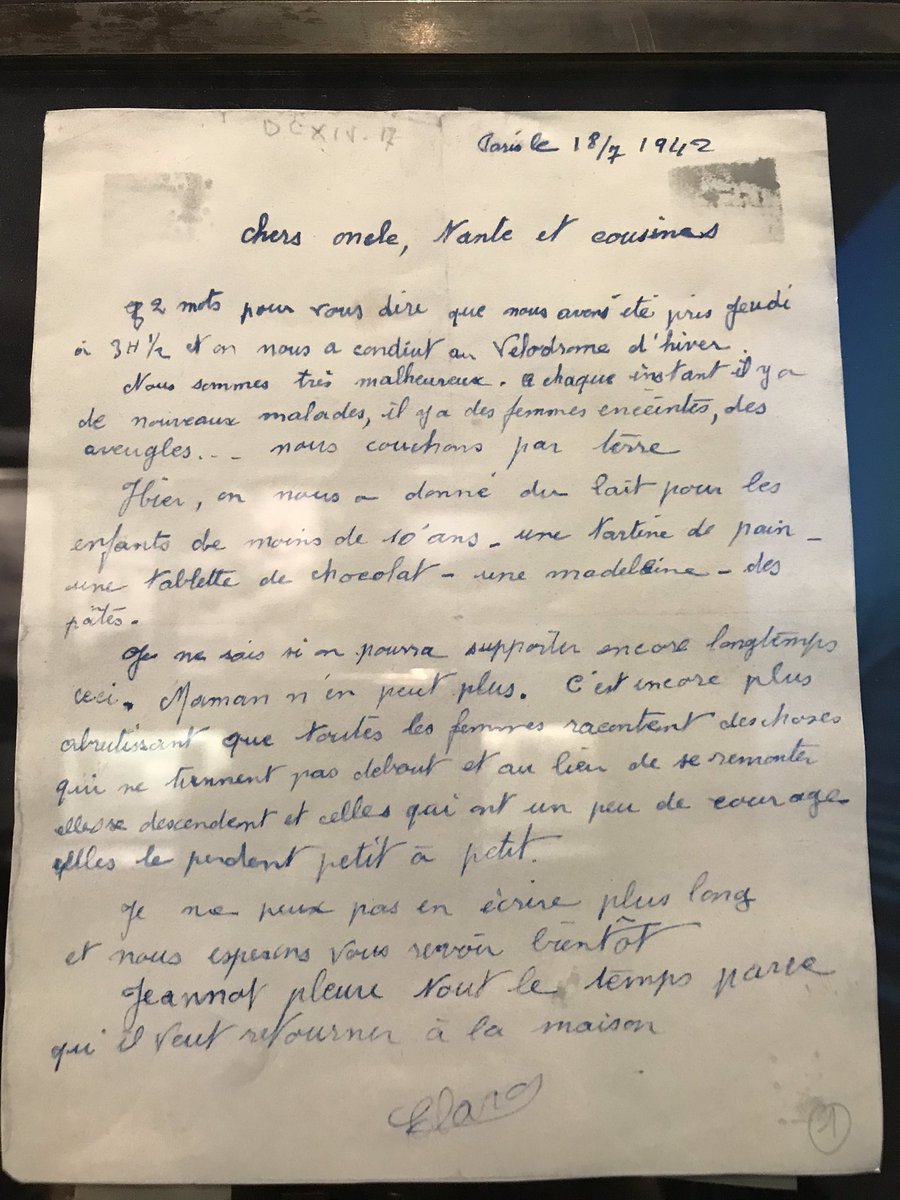 DCXIV.17
Paris le 18/7 1942
chers oncle, Tante et cousines
qq 2 mots pour vous dire que nous avons été pris Jeudi
à 3H 1/2 et on nous a condiut au Vélodrome d'hiver.
Nous sommes très malheureux. a chaque instant il y a
de nouveaux malades, il y a des femmes enceintes, des
aveugles... nous couchons par terre
Hier, on nous a donné du lait pour les
enfants de moins de 10 ans - une tartine de pain -
une tablette de chocolat - une madeleine - des
pâtes.
Je ne sais si on pourra supporter encore longtemps
ceci. Maman n'en peut plus. C'est encore plus
abrutissant que toutes les femmes racontent des choses
qui ne tiennent pas debout et au lieu de se remonter
elles se descendent et celles qui ont un peu de courage
elles le perdent petit à petit.
Je ne peux pas en écrire plus long
et nous esperons vous revoir bientôt
Jeannot pleure tout le temps parce
qui il veut retourner à la maison